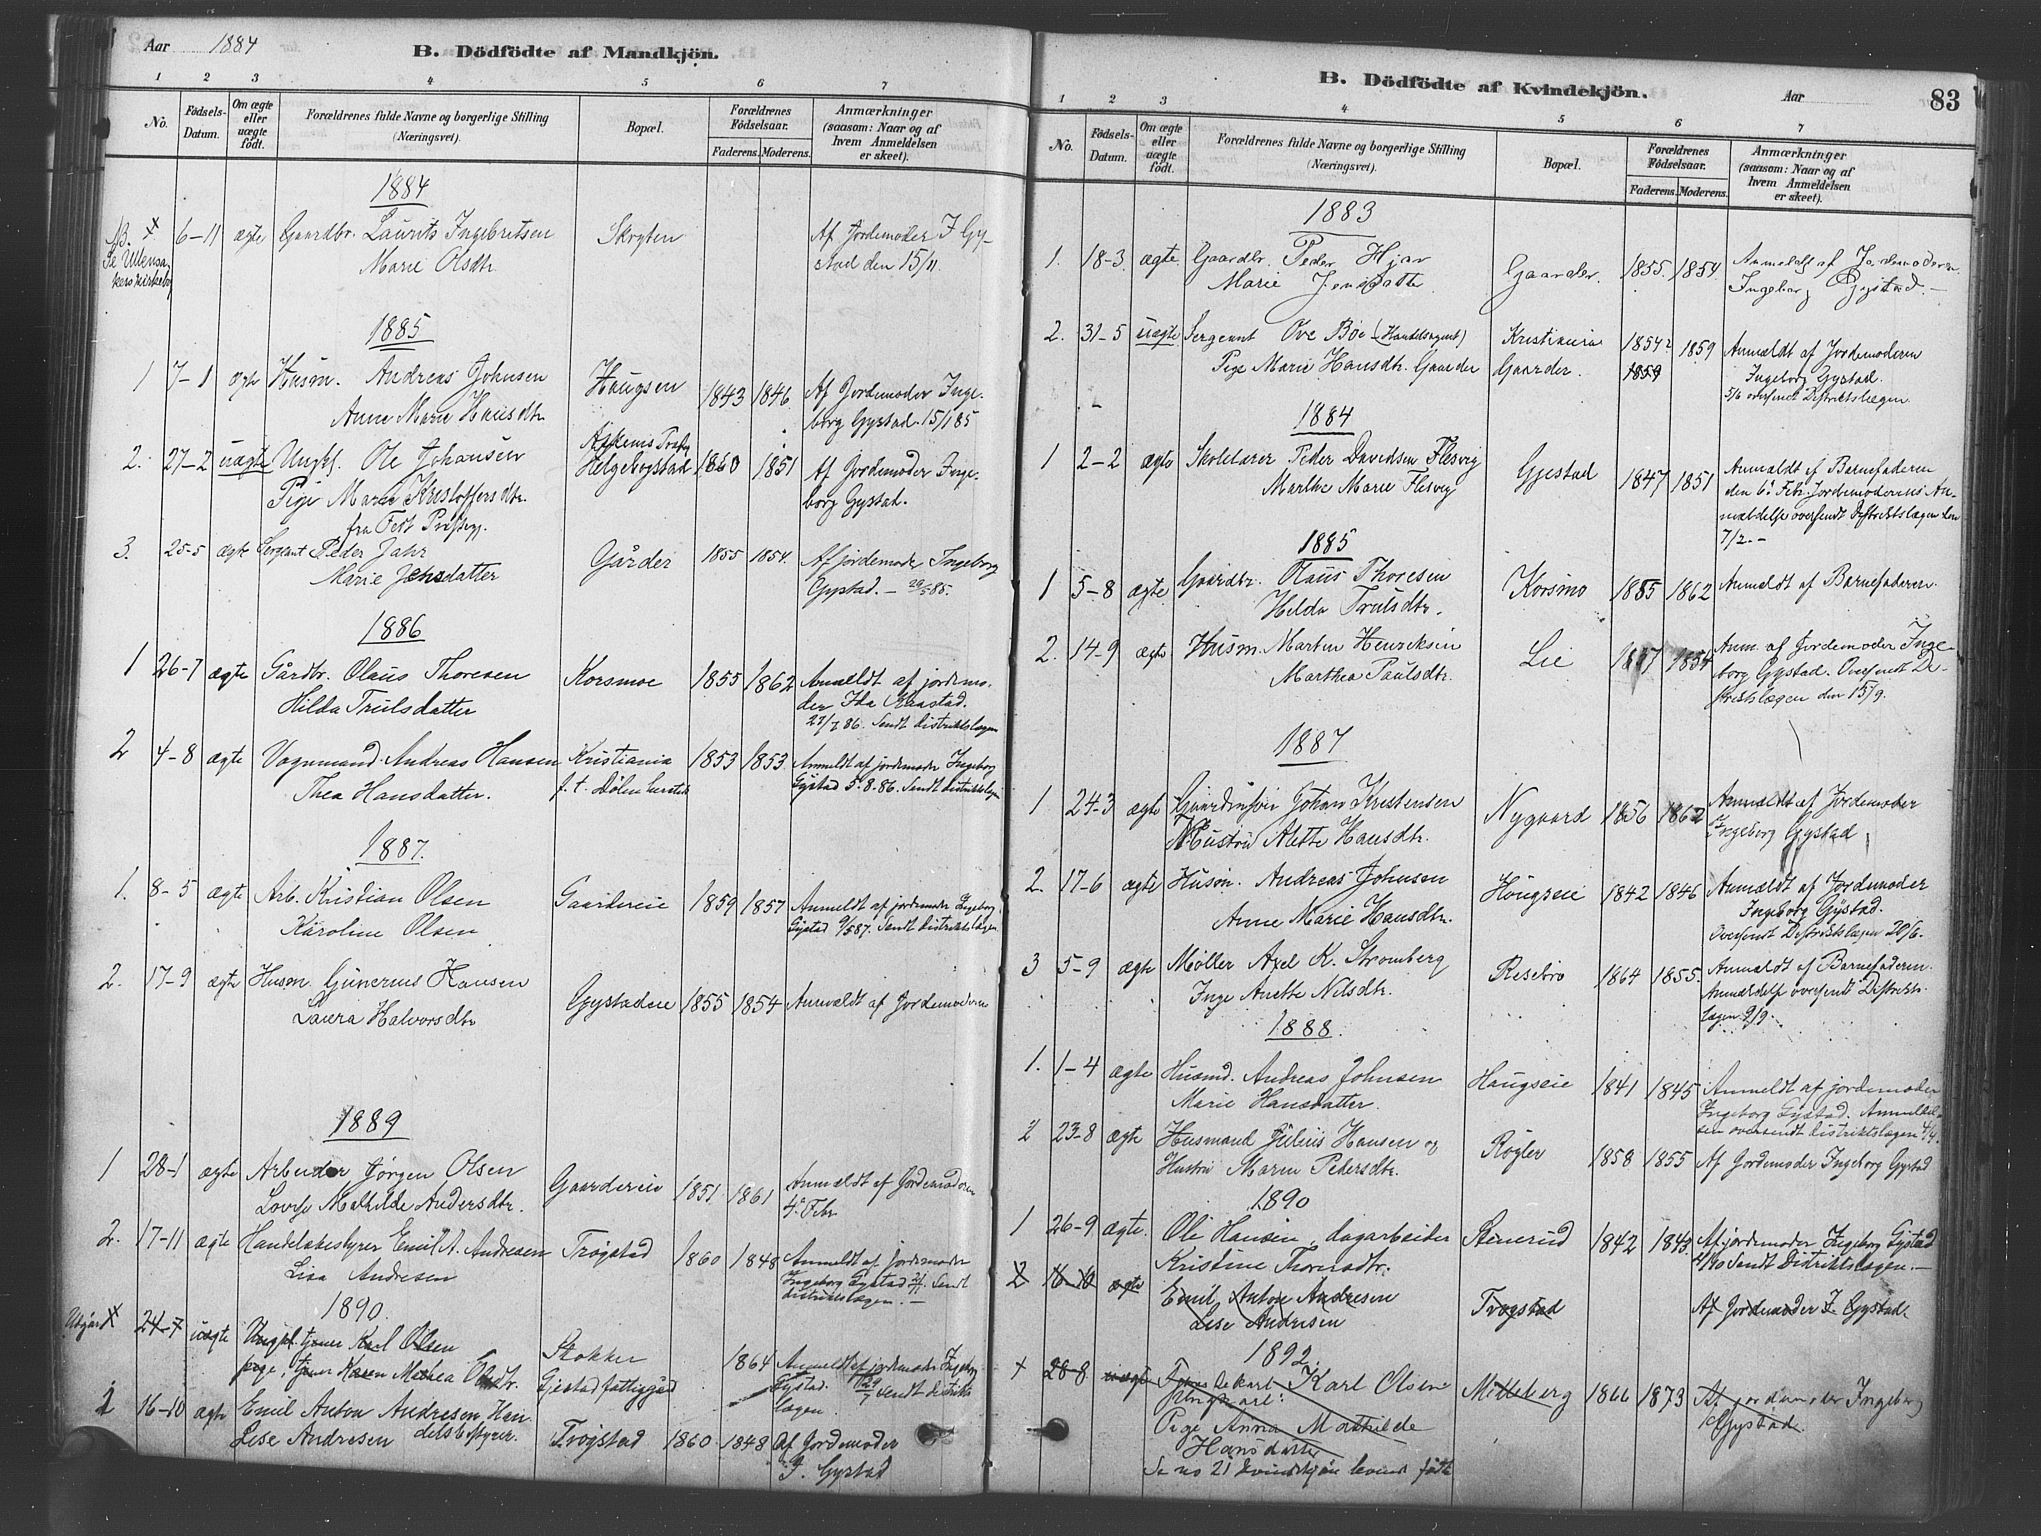 Aar 1884
B. Dödfödte af Mandkjön.
1 2 3 4 5 6 7
No.
Födsels-Datum.
Om ægte eller uægte födt.
Forældrenes fulde Navne og borgerlige Stilling (Næringsvei).
Bopæl.
Forældrenes Födselsaar.
Faderens. Moderens.
Anmærkninger (saasom: Naar og af hvem Anmeldelsen er skeet).
1884
6-11 ægte Gaardbr. Laurits Ingebretsen Skryten Af Jordemoder I Gy-
Marie Olsdtr. stad den 15/11.
1885
1 7-1 ægte Husm. Andreas Johnsen Haugsen 1843 1846 Af Jordemoder Inge-
Anne Marie Hansdtr. borg Gystad. 15/1 85
2. 27-2 uægte Ungk. Ole Johansen Helgebogstad 1860 1851 Af Jordemoder Inge-
Pige Maren Kristoffersdtr. borg Gystad.
fra Fet Præstg.
3. 25-5 ægte Sergeant Peder Jahr Gårder 1855 1854. Af jordemoder Ingeborg
Marie Jensdatter Gystad. – 29/5 85.
1886
1 26-7 ægte Gårdbr. Olaus Thoresen Korsmoe 1855 1862 Anmeldt af jordemo-
Hilda Trulsdatter der Ida Raastad.
27/7 86. Sendt distriktslægen
2 4-8 ægte Vognmand Andreas Hansen Kristiania 1853 1853. Anmeldt af jordemoder Ingeborg
Thea Hansdatter. f. t. Dølen Gystad 5-8-86. Sendt distriktslægen
1887.
1. 8-5 ægte Arb. Kristian Olsen Gaardereie 1859 1857 Anmeldt af jordemoder Ingeborg
Karoline Olsen Gystad 9/5 87. Sendt distriktslægen
2. 17-9 ægte Husm. Gunerius Hansen Gystadeie 1855 1854 Anmeldt af Jordemoderen
Laura Halvorsdtr
1889
1 28-1 ægte Arbeider Jørgen Olsen Gaardereie 1851 1861 Anmeldt af Jordemoderen
Lovise Mathilde Andersdtr. 4. Febr
2. 17-11 ægte Handelsbestyrer Emil A. Andresen Trøgstad 1860 1848 Anmeldt af jordemoder
Lisa Andresen Ingeborg Gystad Sendt
distriktslægen. –
1890.
Utgår 24-7 uægte Ungkl. tjener Karl Olsen Stokker 1864 Anmeldt af jordemoder Ingeborg
pige, tjener Karen Mathea Olsdtr. Gjestad fattiggård Gystad. 29/7 Sendt distrikts
lægen
1 16-10 ægte Emil Anton Andresen Han- Trøgstad 1860 1848 Af Jordemoder
Lise Andresen delsbestyrer. I. Gystad
B. Dödfödte af Kvindekjön.
Aar
83
1 2 3 4 5 6 7
No.
Födsels-Datum.
Om ægte eller uægte födt.
Forældrenes fulde Navne og borgerlige Stilling (Næringsvei).
Bopæl.
Forældrenes Födselsaar.
Faderens. Moderens.
Anmærkninger (saasom: Naar og af hvem Anmeldelsen er skeet).
1883
1. 18-3. ægte. Gaardbr. Peder Hjar Gaarder. 1855. 1854. Anmeldt af Jordemoderen
Marie Jensdatter Ingeborg Gystad. –
2. 31-5 uægte Sergeant Ove Boe (Handelsagent) Kristiania 1854 1859 Anmeldt af Jordemoderen
Pige Marie Hansdtr. Gaarder Gaarder. 1859 Ingeborg Gystad.
5/6 oversendt Distriktslægen
1884
1 2-2 ægte Skolelærer Peder Davidsen Flesvig Gjestad 1847 1851 Anmeldt af Barnefaderen
Marthe Marie Flesvig den 6. Febr. Jordemoderens An-
mældelse oversendt Distriktslægen den
7/2. –
1885
1 5-8 ægte Gaardbr. Olaus Thoresen Korsmo 1855 1862 Anmeldt af Barnefaderen.
Hilda Trulsdtr.
2. 14-9 ægte Husm. Marten Henriksen Lie 1854 Anm. af Jordemoder Inge-
Marthea Paulsdtr. borg Gystad. Oversendt Di-
striktslægen den 15/9.
1887
1 24-3 ægte Johan Kristensen Nygaard 1856 1862 Anmældt af Jordemoder
Hustru Alette Hansdtr. Ingeborg Gystad
2. 17-6 ægte Husm. Andreas Johnsen Hougseie 1842 1846 Anmældt af Jordemoder
Anne Marie Hansdtr. Ingeborg Gystad.
Oversendt Distriktslægen 20/6.
3 5-9 ægte Møller Axel K. Stromberg Risebro 1864 1855. Anmældt af Barnefaderen.
Inge Anette Nilsdtr. Anmældelse oversendt Distrikts-
lægen 9/9.
1888.
1. 1-4 ægte Husmd. Andreas Johnsen Haugseie 1841 1845 Anmeldt af jordemoder
Marie Hansdatter. Ingeborg Gystad. Anmeldel-
sen oversendt distriktslægen 4/4.
2 23-8 ægte Husmand Julius Hansen og Røgler 1858 1855 Af Jordemoder Ingeborg Gystad
Hustru Maren Pedersdtr.
1890
1 26-9 ægte. Ole Hansen, dagarbeider Stenerud 1842 1843. Af jordemoder Ingeborg Gystad
Kristine Thorsdtr. Sendt Distriktslægen. –
2 16-10 ægte Emil Anton Andresen Trøgstad Af Jordemoder I Gystad.
Lise Andresen
1892.
28-8 uægte Karl Olsen Milleberg 1866 1873 Af jordemoder Ingeborg
Ungkarl: Gystad.
Pige Anna Mathilde
Hansdatter
Se no 21 kvindekjön levende födte